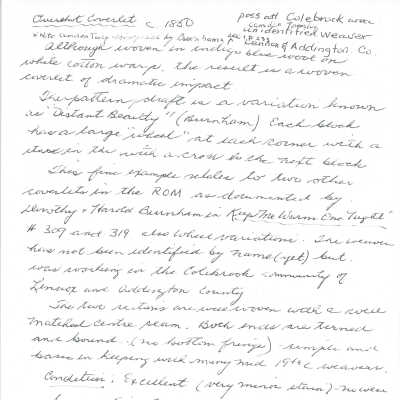 Overshot Coverlet c 1850 poss att Colebrook area
Camden Township
unidentified Weaver
* Note by Burnham P. 233 Lennox & Addington Co.
Although woven in indigo blue wool on
white cotton warp, the result is a woven
coverlet of dramatic impact
The pattern draft is a variation known
as "Distant Beauty" (Burnham) Each block
has a large "wheel" at each corner with a
in the with a cross in the next block
This fine example relates to two other
coverlets in the ROM as documented by
Dorothy & Harold Burnham in Keep Me Warm One Night
# 309 and 319 also Wheel variations. The weaver
has not been identified by name (yet) but
was working in the Colebrook community of
Lennox and Addington County
The two are woven with a well
matched centre seam. Both ends are turned
and bound. (no bottom fringe) simple and
basic in keeping with many mid 19th C weavers.
Condition: Excellent (very minor stain) no wear